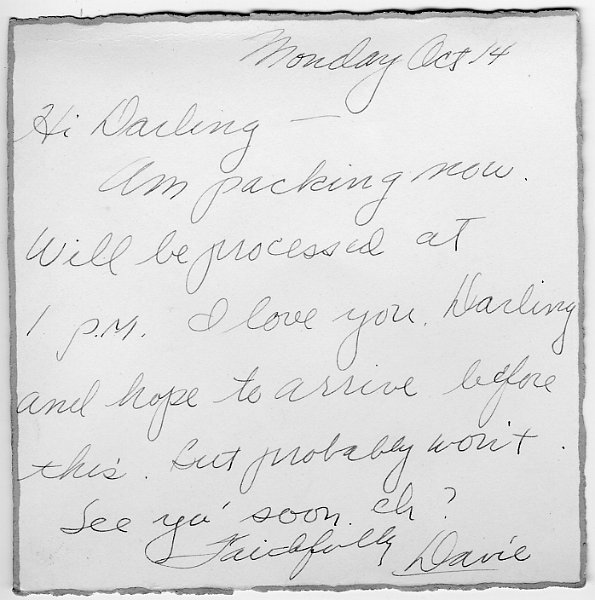 Monday Oct 14
Hi Darling —
Am packing now.
Will be processed at
1 P.M. I love you, Darling
and hope to arrive before
this. But probably won't.
See ya' soon eh?
Faithfully Davie